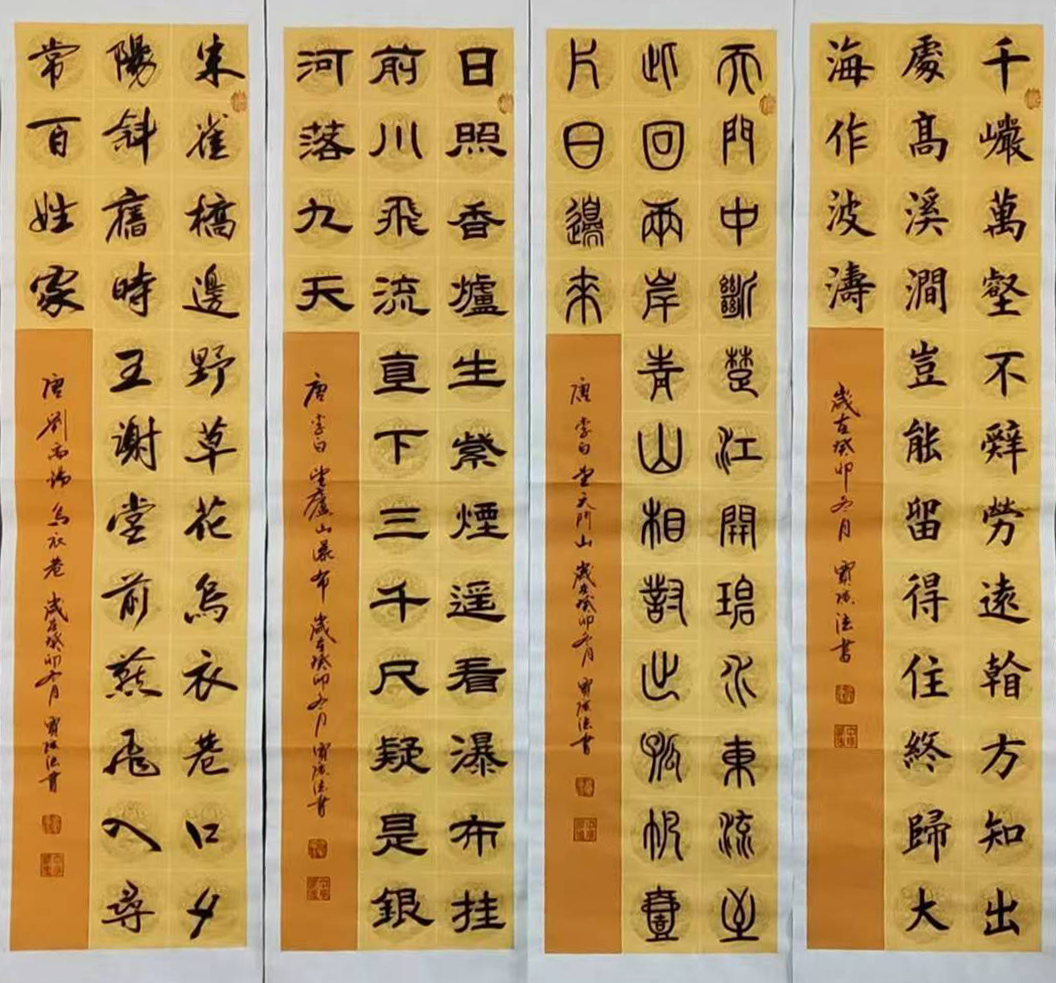 千巖萬壑不辤勞遠看方知出
處高溪澗豈能留得住終歸大
海作波濤
歲在癸卯 月 法書
天門中斷楚江開碧水東流至
此回兩岸青山相對出孤帆壹
片日邊來
唐 李白 望天門山 歲在癸卯 月 法書
日照香爐生紫煙遥看瀑布挂
前川飛流直下三千尺疑是銀
河落九天
唐 李白 望廬山瀑布 歲在癸卯 月 法書
朱雀橋邊野草花烏衣巷口夕
陽斜舊時王謝堂前燕飛入尋
常百姓家
唐 劉禹錫 烏衣巷 歲在癸卯 月 法書